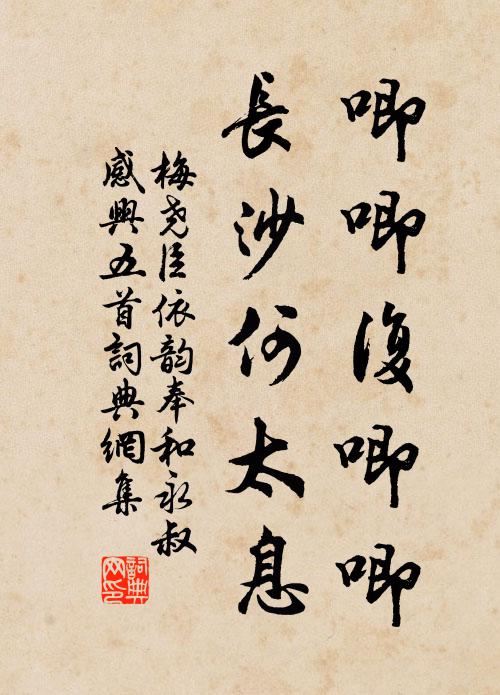 唧唧復唧唧
長沙何太息
梅堯臣依韵奉和永叔
感興五首詞典網集
詞典网印